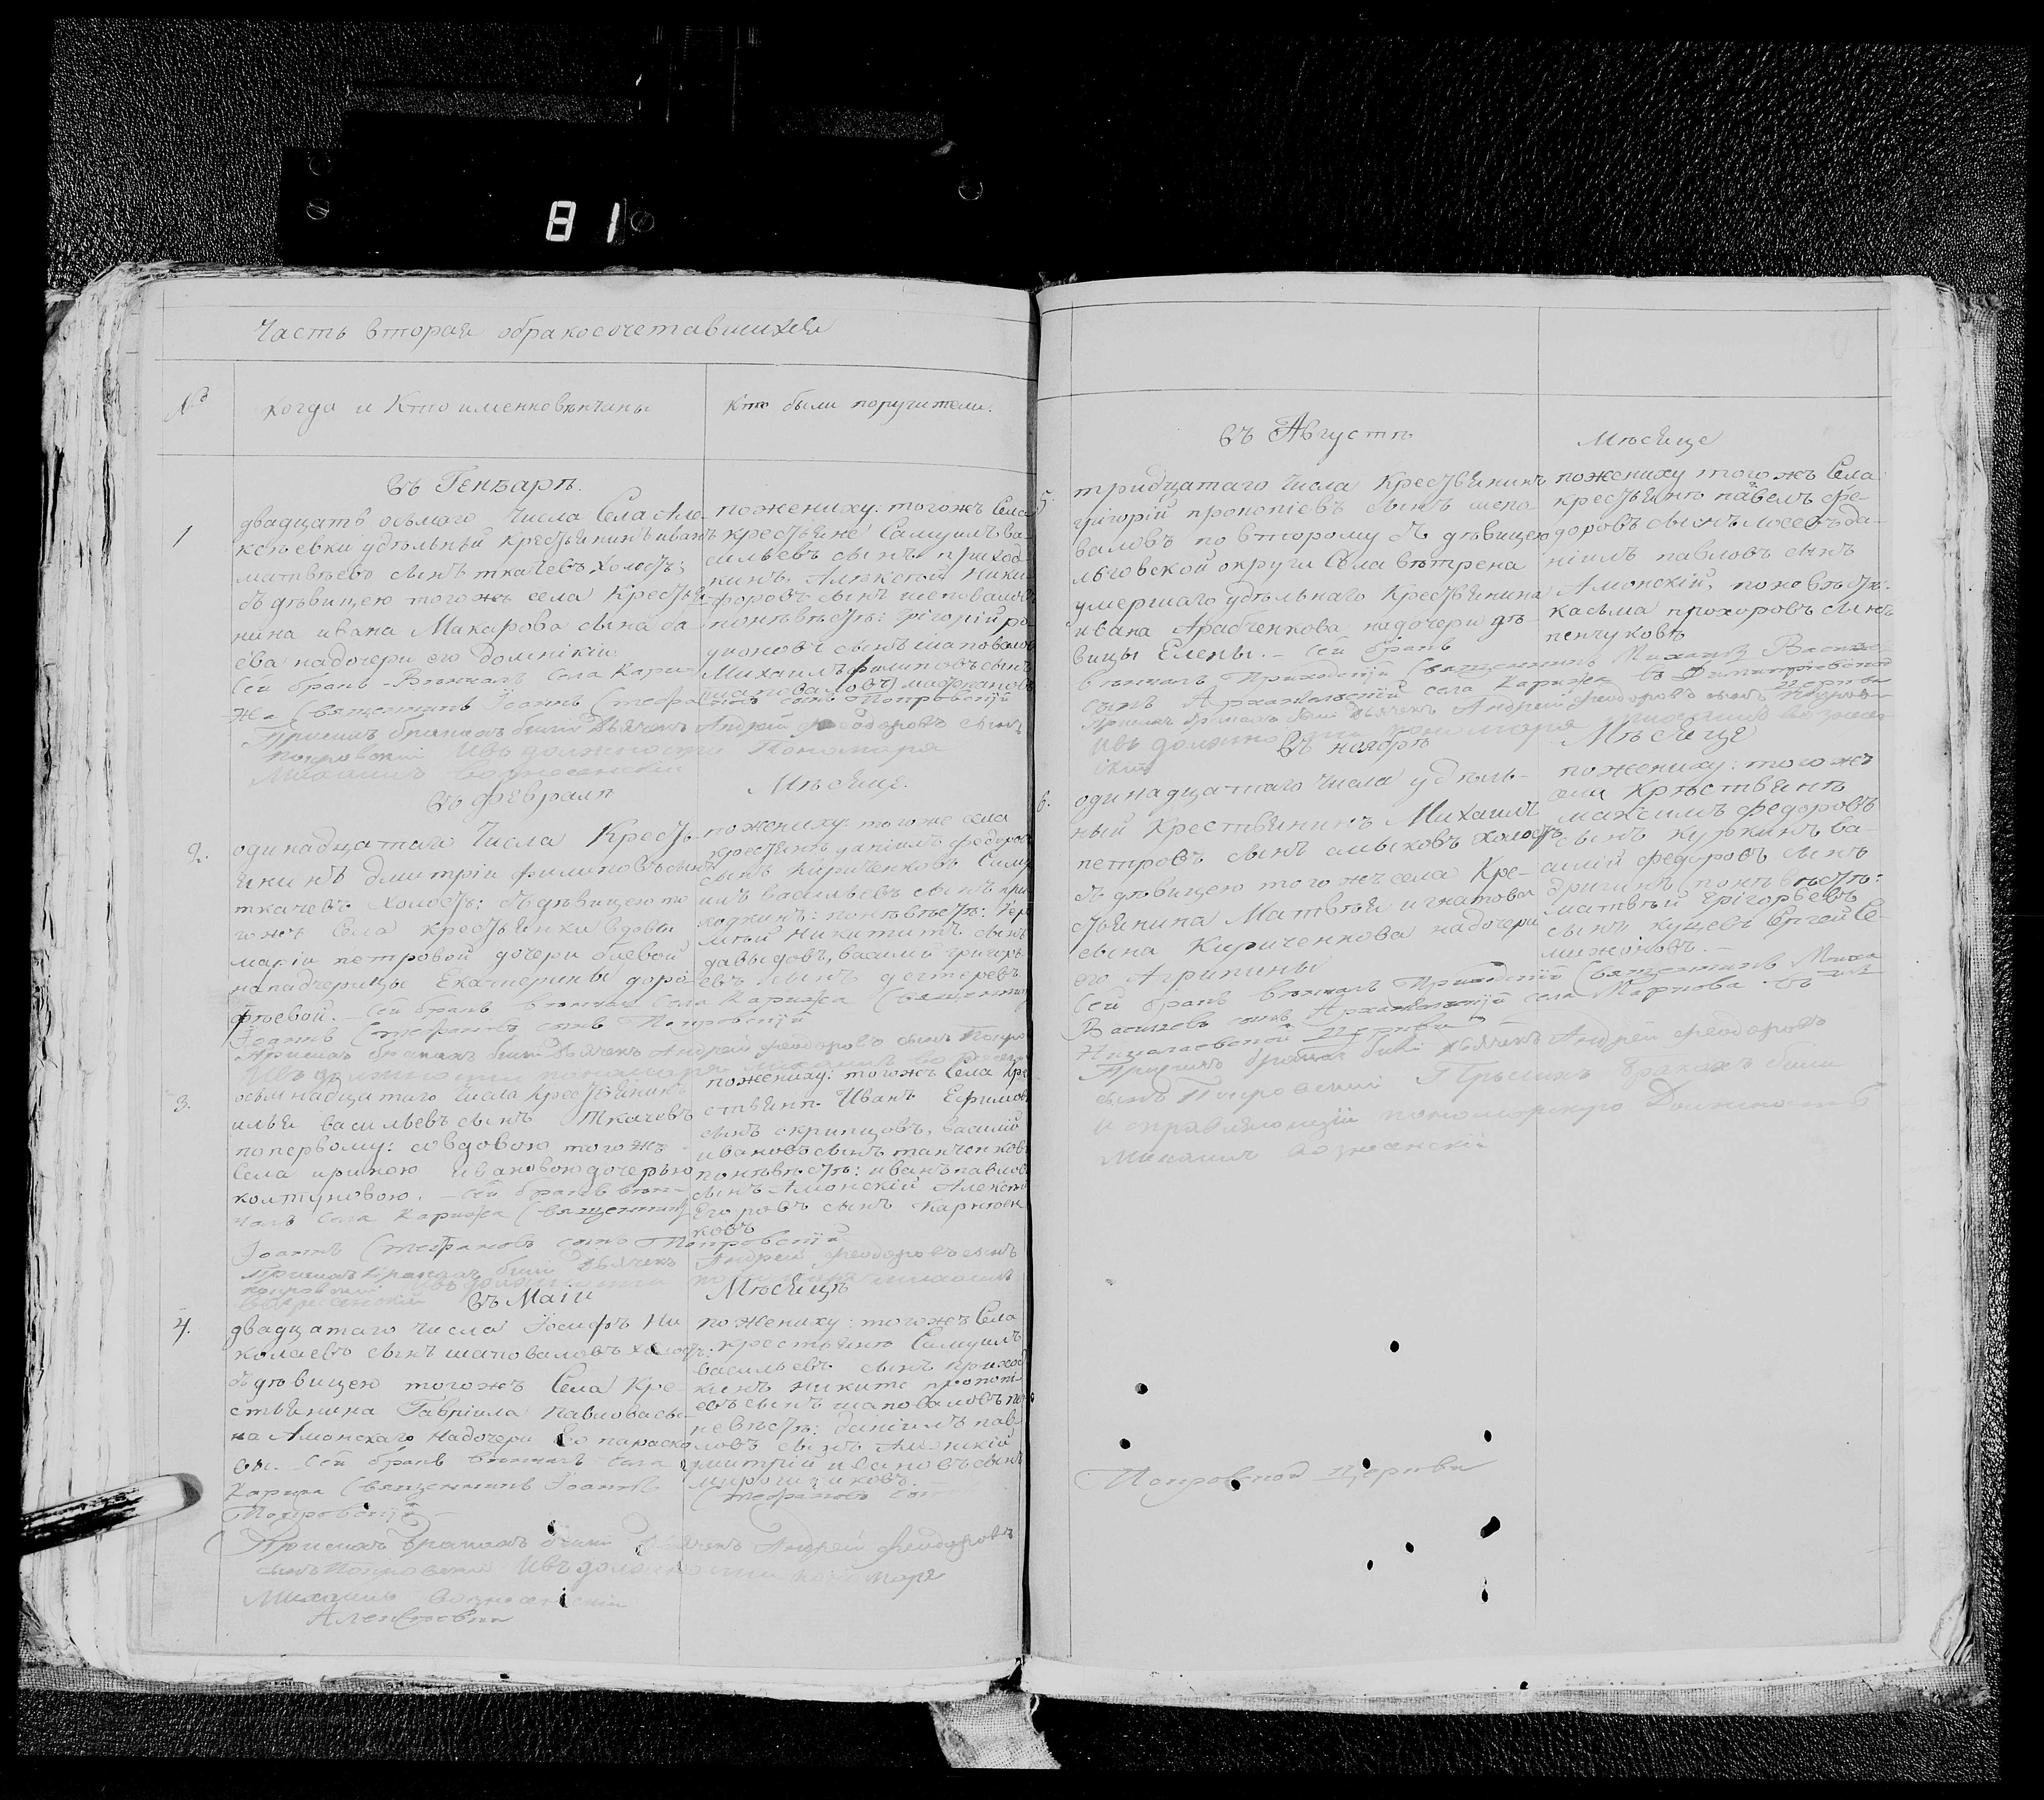 81
Часть вторая обракосочетавшихся
№
когда и кто именно венчаны
кто были поручители.
Въ Генваре.
1
двадцать осьмого числа Села Але-
ксеевки удельный крестьянинъ иванъ
матвеевъ сынъ ткачевъ холостъ;
съ девицею того жъ села крестья-
нина ивана Макарова сына ба-
ева надочери его домникии
Сей бракъ Венчалъ Села Кари-
жа Священникъ Iоаннъ Стефановъ сынъ Покровскiй
При семъ бракахъ были дьячекъ Андрей феодоровъ сынъ
покровскiй Ивъ должности Пономаря
Михаилъ вознесенскiй
пожениху: тогожъ Села
крестьяне Самуилъ ва-
сильевъ сынъ приход-
кинъ, Алексей Ники-
форовъ сынъ шаповаловъ
поневесте: григорiй ро-
дионовъ сынъ шаповаловъ
Михаилъ филиповъ сынъ
шаповаловъ
въ феврале
Месяце.
2.
одинадцатаго числа Кресть-
янинъ дмитрiй филиповъ сынъ
ткачевъ холостъ; съ девицею то-
гожъ Села крестьянки вдовы
марiи петровой дочери баевой
нападчерицы Екатерины доро-
феевой. Сей бракъ венчалъ Села Карижа Священникъ
Iоаннъ Стефановъ сынъ Покровскiй
При семъ бракахъ были дьячекъ Андрей феодоровъ сынъ Покро
Ивъ должности пономаря михаилъ
пожениху: тогоже села
крестьяне данiилъ федоровъ
сынъ Кириченковъ Саму-
илъ васильевъ сынъ при-
ходкинъ: поневесте:
никитинъ сынъ
давыдовъ, василий григорь-
евъ сынъ дегтеревъ
3.
осьмнадцатаго числа Крестьянинъ
илья васильевъ сынъ Ткачевъ
попервому: совдовою тогожъ
Села ириною ивановою дочерью
колтуновою. Сей бракъ вен-
чалъ Села Карижа Священникъ
Iоаннъ Стефановъ сынъ Покровскiй
При семъ бракахъ были дьячекъ Андрей феодоровъ сынъ
покровскiй Ивъ должности пономаря михаилъ
вознесенскiй
пожениху: тогожъ Села кре
стьяне Иванъ Ефимовъ
сынъ скрипцовъ, василий
ивановъ сынъ танченковъ
поневесте: иванъ павловъ
сынъ Амонскiй Алексей
Егоровъ сынъ
ковъ
въ Маiи
Месяце
4.
двадцатаго числа Iосифъ Ни-
колаевъ сынъ шаповаловъ холостъ;
съ девицею тогожъ Села Кре-
стьянина Гаврiила Павлова сы-
на Амонскаго надочери Его параско
вiи. Сей бракъ венчалъ Села
Карижа Священникъ Iоаннъ Стефановъ сынъ
Покровскiй
При семъ бракахъ были дьячекъ Андрей феодоровъ
сынъ Покровскiй Ивъ должности пономаря
Михаилъ вознесенскiй
Алексеевки
пожениху: тогожъ Села
крестьяне Самуилъ
васильевъ сынъ приход
кинъ никита прокопи
евъ сынъ шаповаловъ по
невесте: данiилъ пав-
ловъ сынъ Амонскiй
дмитрiй ивановъ сынъ
мирошниковъ.
въ Августе
Месяце
5.
тридцатаго числа крестьянинъ
григорiй прокопiевъ сынъ шапо
валовъ по второму съ девицею
льговской округи Села ветрена
умершаго удельнаго Крестьянина
ивана Арабченкова надочери де-
вицы Елены. Сей бракъ
венчалъ Приходскiй Священникъ Михаилъ Василье
сынъ Архангельскiй села Карижа въ Димитрiевской церкви
При семъ бракахъ были дьячекъ Андрей феодоровъ сынъ Покров-
Ивъ должности пономаря михаилъ вознесен
скiй
пожениху тогожъ Села
крестьяне павелъ фе-
доровъ сынъ мосевъ да-
нiилъ павловъ сынъ
Амонскiй, поневесте:
касьма прохоровъ сынъ
пенчуковъ
въ ноябре
Месяце
6.
одинадцатаго числа удель-
ный Крестьянинъ Михаилъ
петровъ сынъ амыховъ холостъ
съ девицею тогожъ села Кре-
стьянина Матвея игнатова
сына Кириченкова надочери
его Агрипины
Сей бракъ венчалъ Приходскiй Священникъ Миха
Васильевъ сынъ Архангельскiй села Маркова въ
Николаевской церкви
При семъ бракахъ были дьячекъ Андрей феодоровъ
сынъ Покровскiй При семъ бракахъ были
и справляющiй пономарскую Должность
Михаилъ вознесенскiй
пожениху: того жъ
села Крестьяне
максимъ федоровъ
сынъ куркинъ ва-
силiй федоровъ сынъ
дригинъ поневесте:
матвей григорьевъ
сынъ кущевъ Сергей Се-
миженовъ.
Покровской церкви